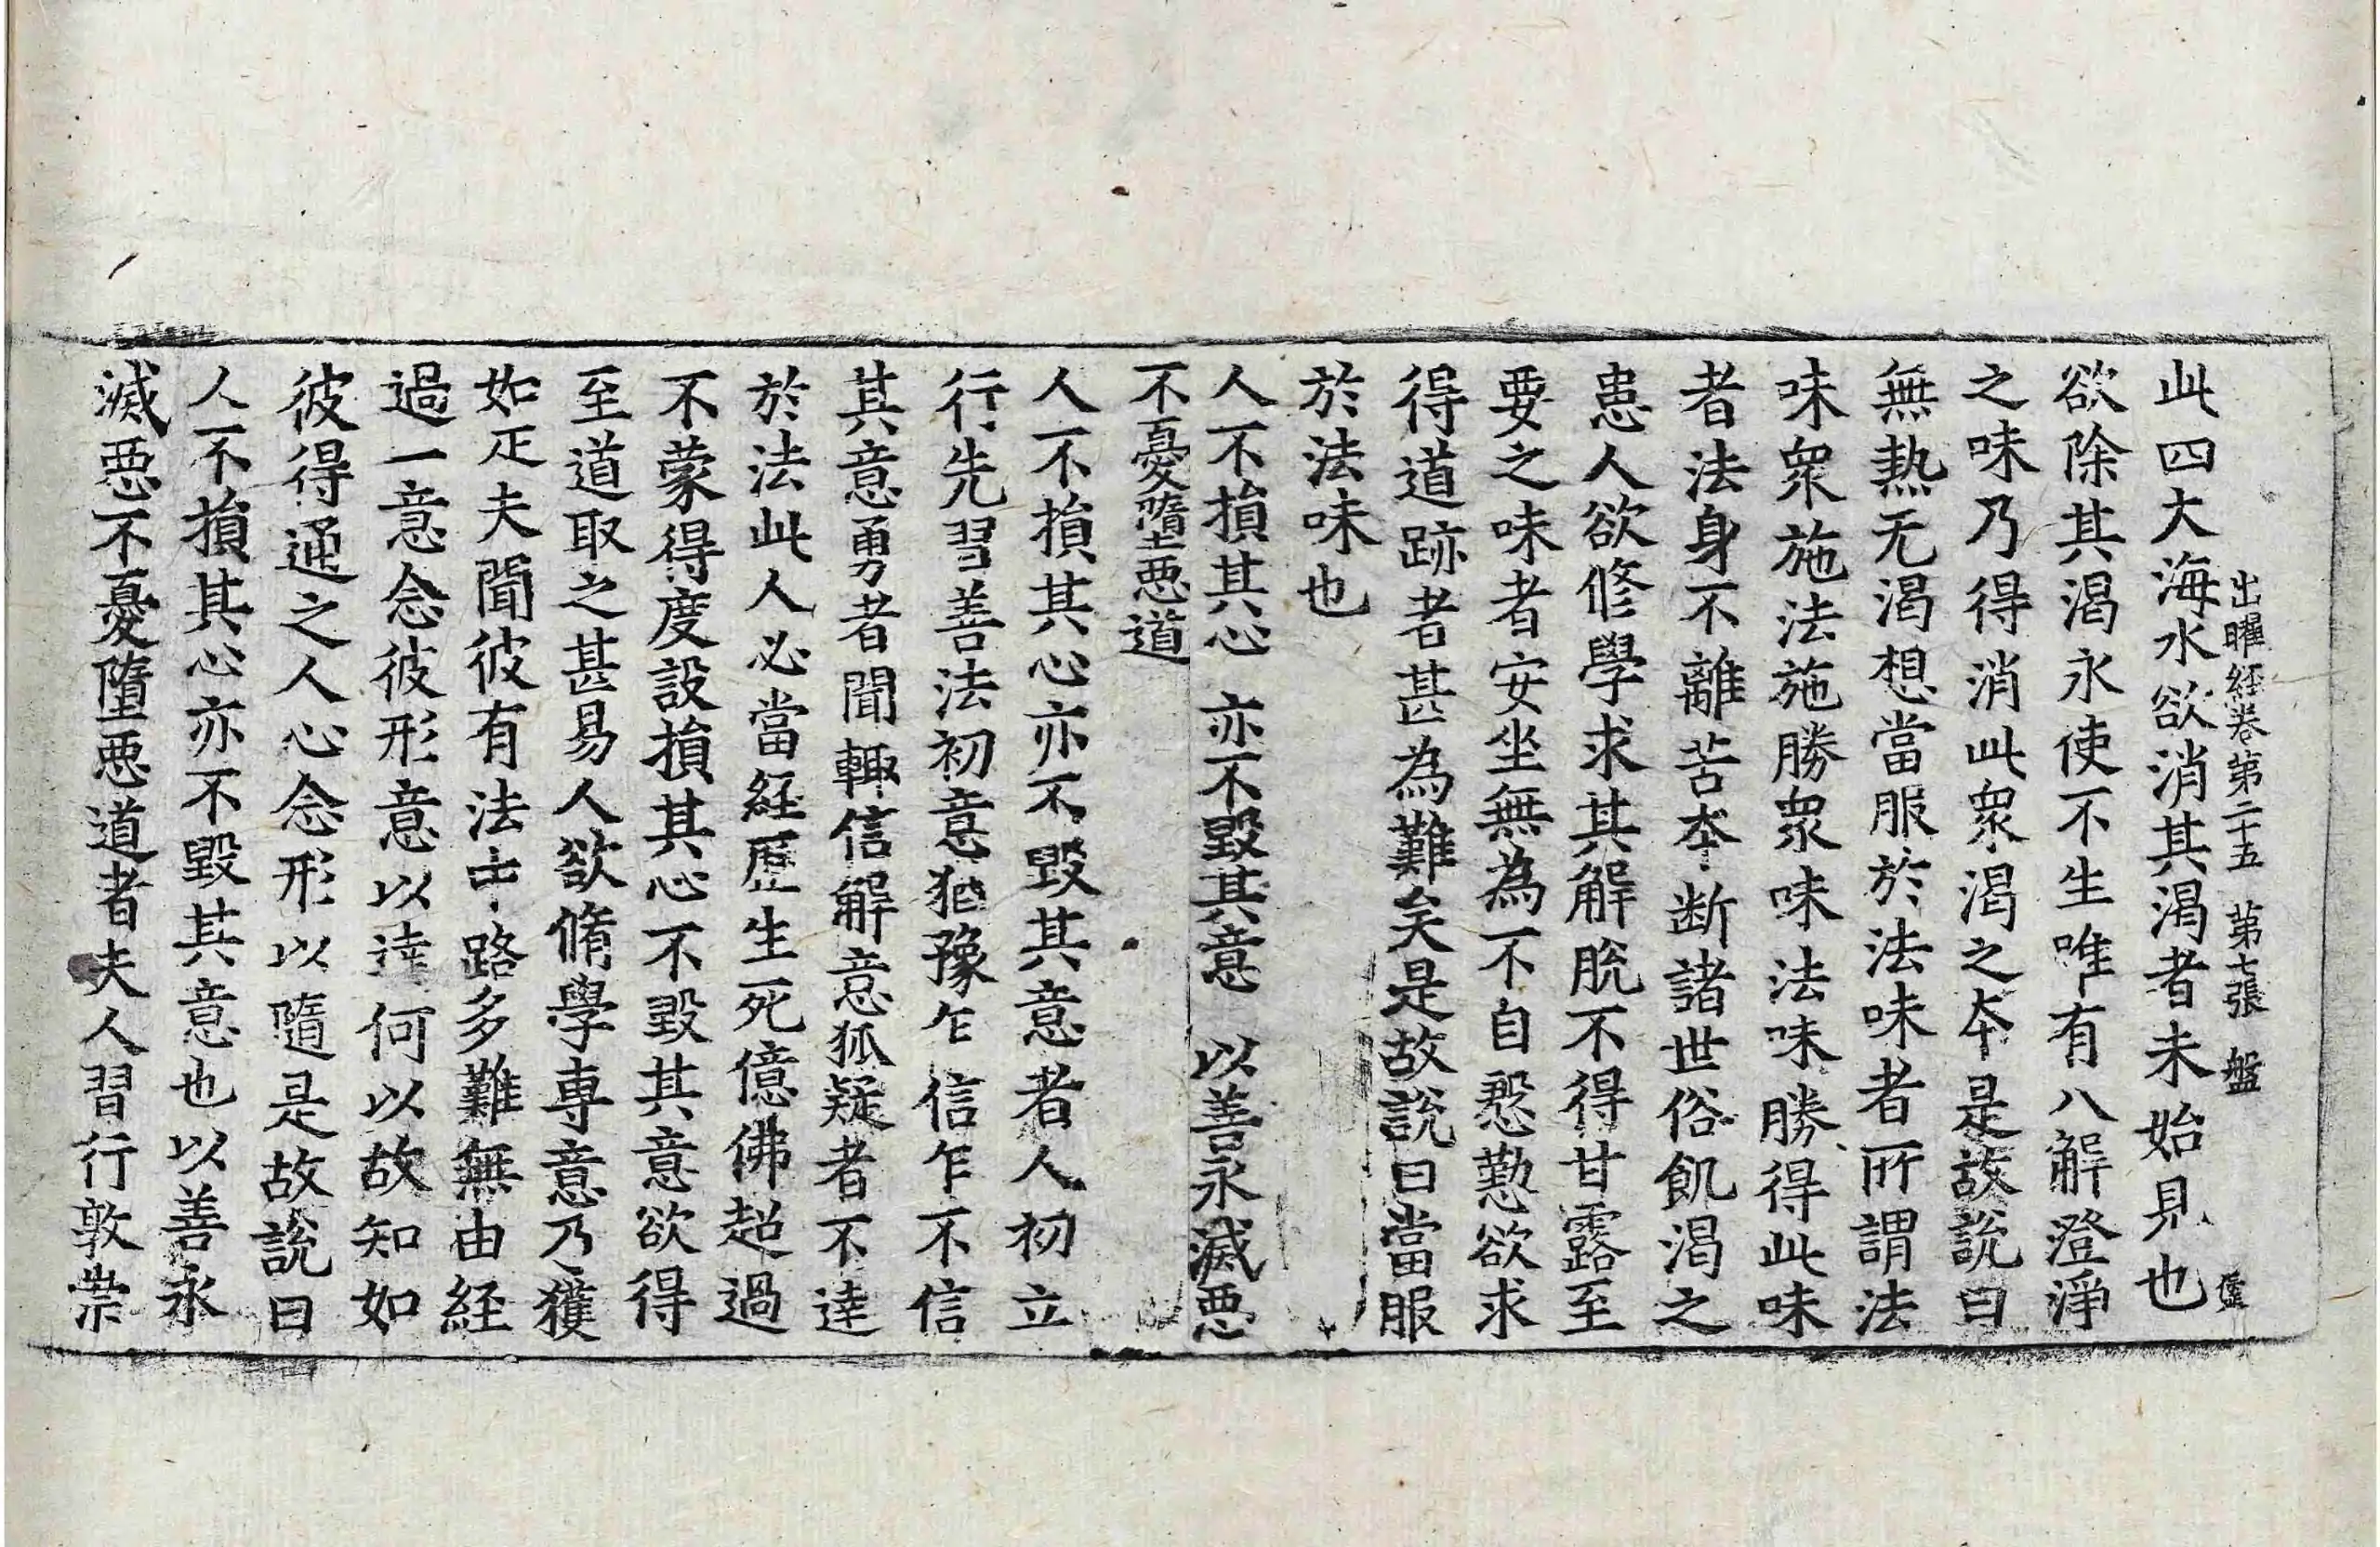 出曜経卷第二十五 第七張 盤
此四大海水欲消其渴者未始見也
欲除其渴永使不生唯有八解澄淨
之味乃得消此衆渴之夲是故說曰
無熱无渴想當服於法味者所謂法
味衆施法施勝衆味法味勝得此味
者法身不離苦夲断諸世俗飢渴之
患人欲修學求其解脫不得甘露至
要之味者安坐無為不自慇懃欲求
得道跡者甚為難矣是故說曰當服
於法味也
人不損其心 亦不毀其意 以善永滅惡
不憂墮惡道
人不損其心亦不毀其意者人初立
行先習善法初意猶豫乍信乍不信
其意勇者聞輙信解意狐疑者不達
於法此人必當経歷生死億佛超過
不蒙得度設損其心不毀其意欲得
至道取之甚易人欲脩學專意乃獲
如疋夫聞彼有法士路多難無由経
過一意念彼形意以達何以故知如
彼得通之人心念形以隨是故說曰
人不損其心亦不毀其意也以善永
滅惡不憂墮惡道者夫人習行敦崇